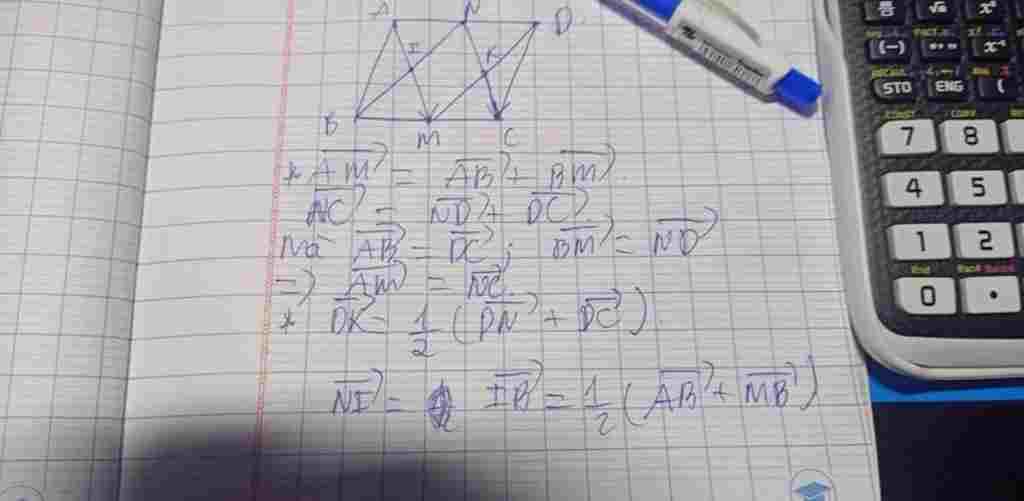 A N D
I K
B M C
* $\overrightarrow{AM} = \overrightarrow{AB} + \overrightarrow{BM}$.
$\overrightarrow{NC} = \overrightarrow{ND} + \overrightarrow{DC}$.
Mà $\overrightarrow{AB} = \overrightarrow{DC}$ ; $\overrightarrow{BM} = \overrightarrow{ND}$
=> $\overrightarrow{AM} = \overrightarrow{NC}$.
* $\overrightarrow{DK} = \frac{1}{2}(\overrightarrow{DN} + \overrightarrow{DC})$.
$\overrightarrow{NI} = \overrightarrow{IB} = \frac{1}{2}(\overrightarrow{AB} + \overrightarrow{MB})$
STO ENG (
(-) °'"
7 8
4 5
1 2
0 •